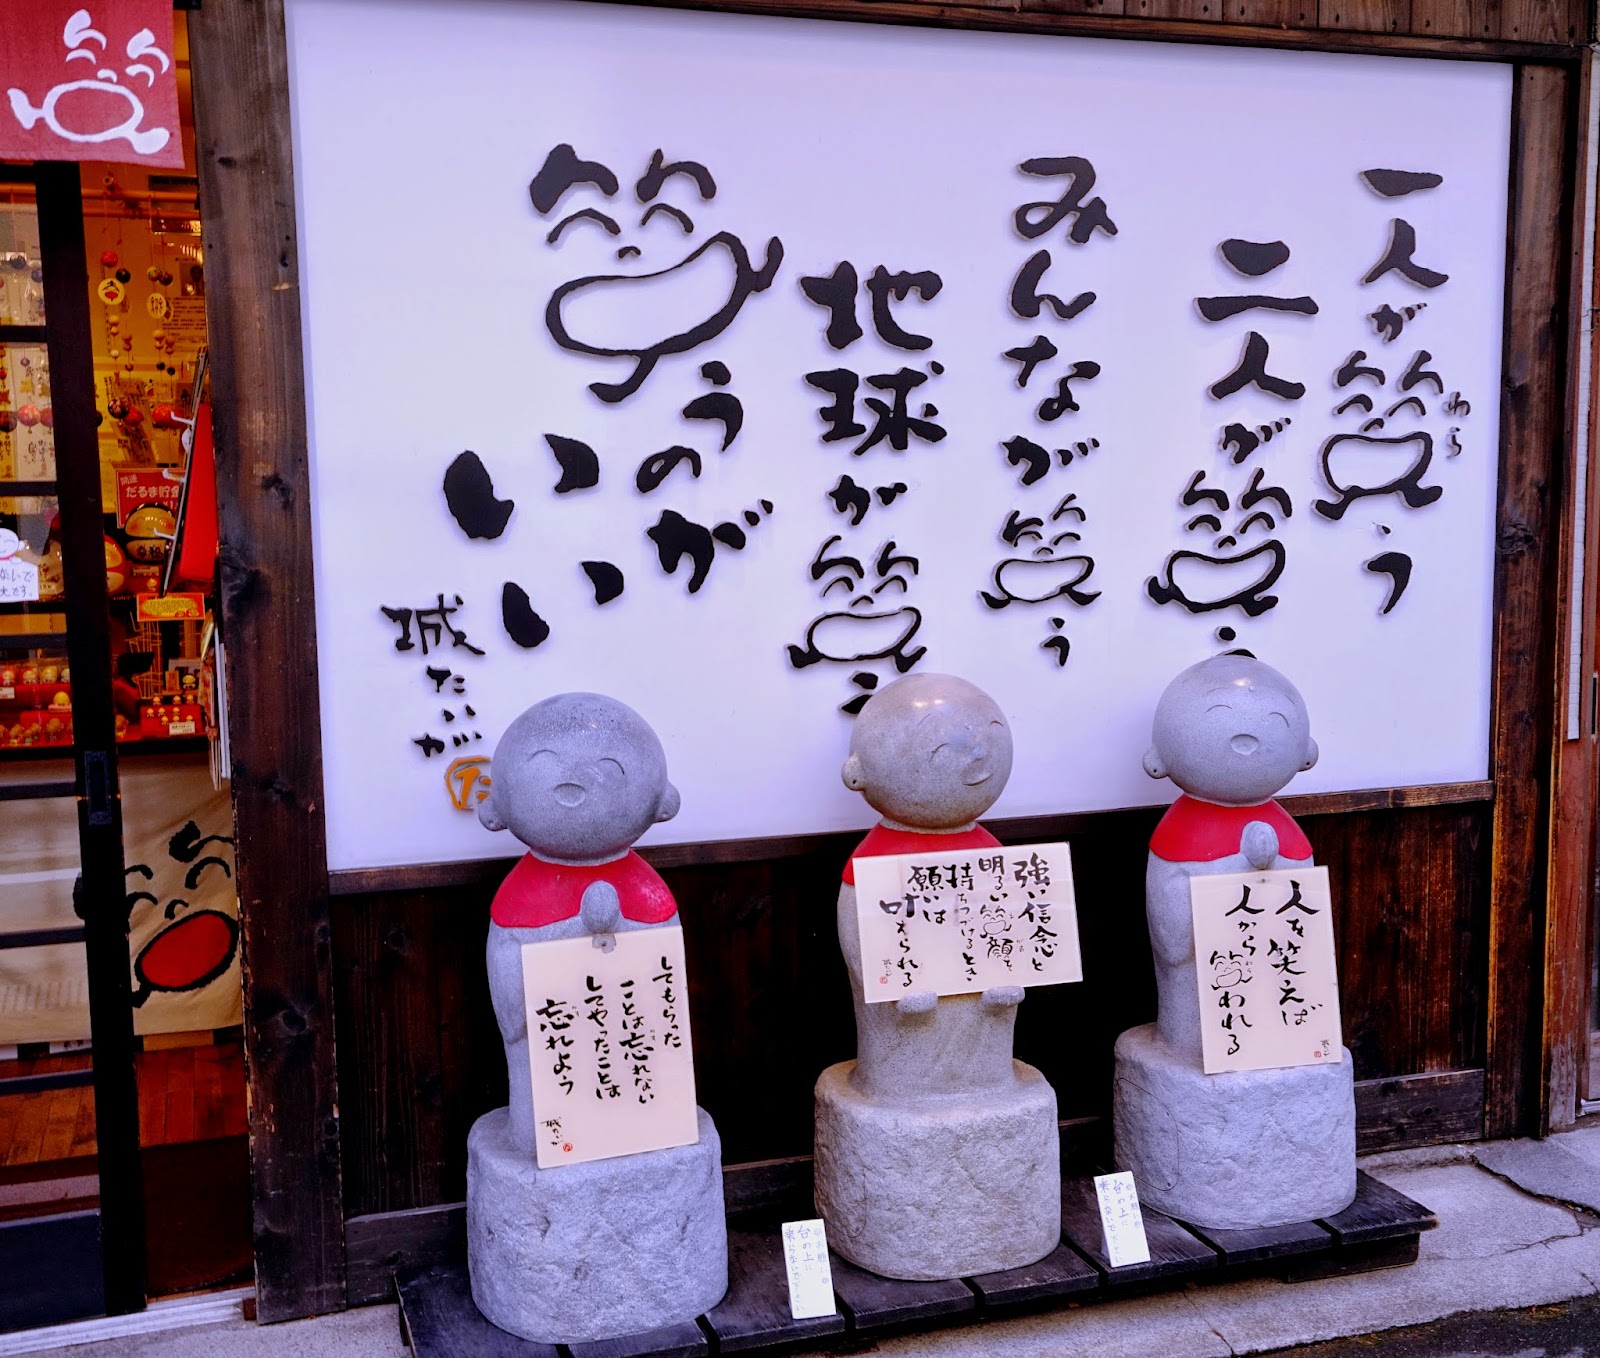 一人が笑う
わら
二人が笑う
みんなが笑う
地球が笑う
笑うのが
いい
いい
城たいが
た
人を笑えば
人から笑われる
強い信念と
明るい笑顔を
持ちつづけるとき
願いは
叶えられる
してもらった
ことは忘れない
してやったことは
忘れよう
城たいが
台の上に
乗らないで下さい
台の上に
乗らないで下さい
開運
だるま貯金